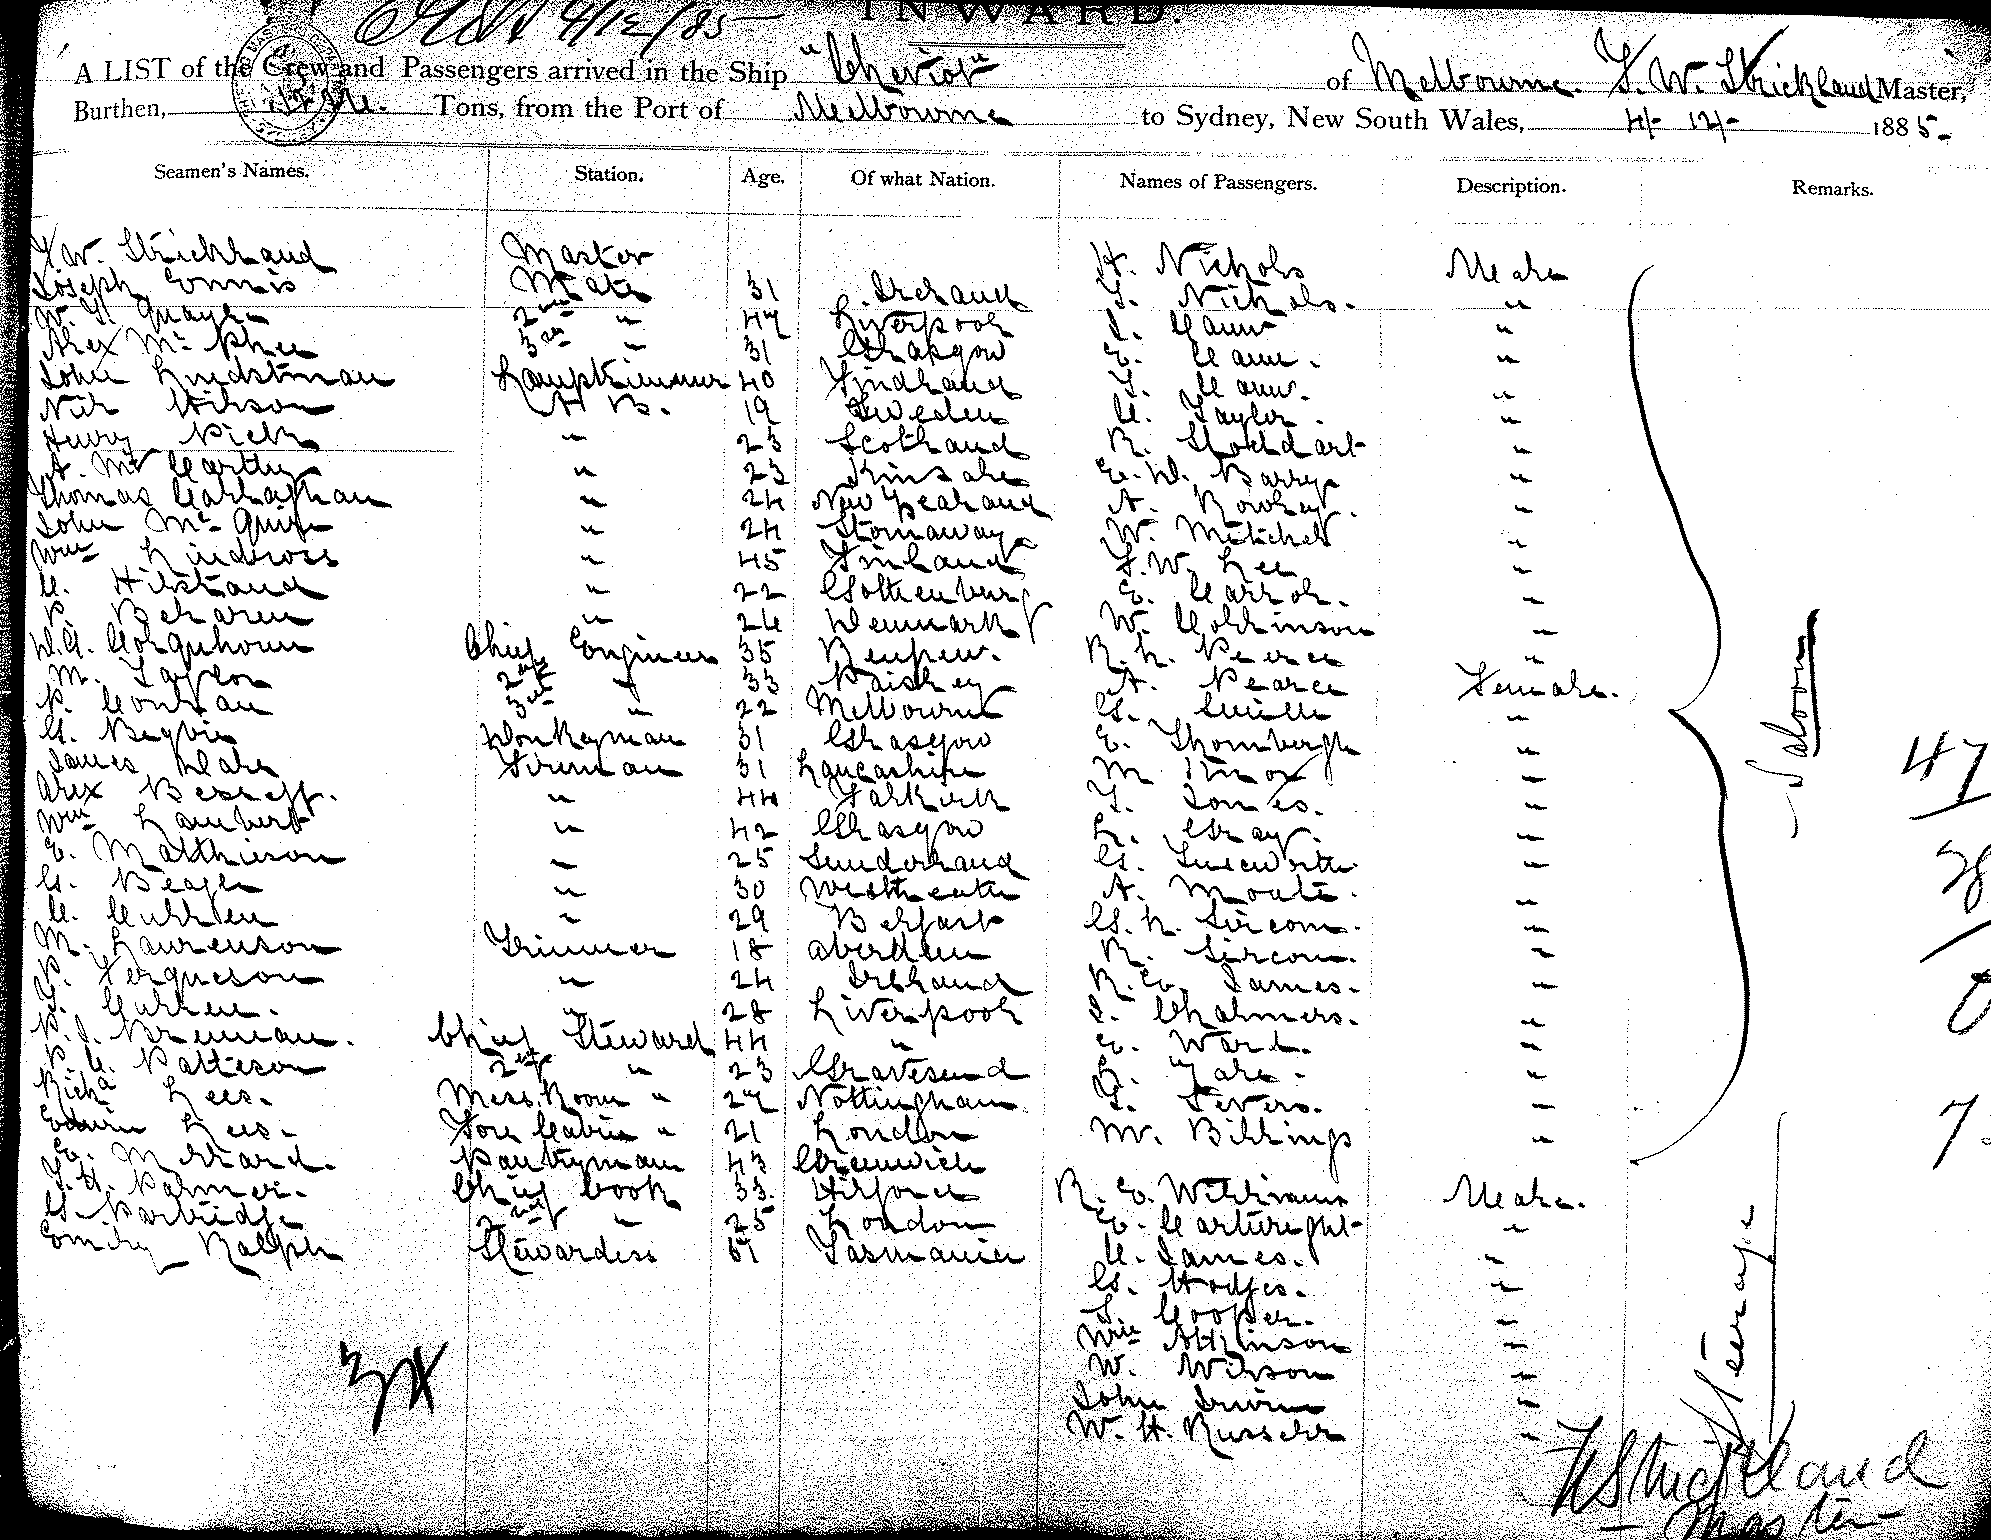 INWARD.
4/12/85
A LIST of the Crew and Passengers arrived in the Ship "Cheviot" of Melbourne. F. W. Strickland Master,
Burthen, Tons, from the Port of Melbourne to Sydney, New South Wales, 4/12/- 1885-
Seamen's Names. Station. Age. Of what Nation. Names of Passengers. Description. Remarks.
F. W. Strickland Master H. Nichols Male
Joseph Ennis Mate 31 Ireland T. Nichols. "
W. H. Quayle 2nd " 47 Liverpool J. Cann "
Alex McPhee 3rd " 31 Glasgow E. Cann. "
John Lindstman Lamptrimmer 40 Findland T. Cann. "
Nils Nilson A B. 19 Sweden C. Taylor. "
Henry Pick " 25 Scotland R. Stoddart "
A. McCarthy " 23 Kinsale E. W. Barry "
Thomas Callaghan " 24 New Zealand A. Rowley. "
John McGuire " 24 Stornaway W. Mitchell "
Wm Lindross " 45 Finland F. W. Lee "
C. Hilstand " 22 Gothenburg E. Carrol. "
P. " 24 Denmark W. Colkinson "
Colquhoun Chief Engineer 35 Renfrew. R. L. Pearce "
M. Taylor 2nd " 33 Paisley A. Pearce Female.
P. Conlan 3rd " 22 Melbourne G. "
G. Begbie Donkeyman 31 Glasgow E. Thornbergh "
James Dale Fireman 31 Lancashire M Knox "
Alex " 44 Falkirk T. Jones. "
Wm Lambert " 42 Glasgow L. Gray. "
E. Matthieson " 25 Sunderland G. "
G. Beagle " 30 Westmeath A. Moate. "
C. Cullen " 29 Belfast G. L. Sircom. "
M. Laurenson Trimmer 18 Aberdeen R. Sircom. "
P. Fergueson " 24 Ireland R. E. James. "
T. Cullen. " 28 Liverpool J. Chalmers. "
P. J. Brennan. Chief Steward 44 " E. Ward. "
P. C. Patteson 2nd " 23 Gravesend L. "
Richd Lees. Mess Room " 27 Nottingham T. Severs. "
Edwin Lees. Fore Cabin " 21 London M. Billings "
E. Millard. Pantryman 43 Greenwich
T. H. Palmer. Chief Cook 33. Ilford R. E. Williams Male.
G. Partridge 2nd " 25 London E. Cartwright "
Emily Ralph Stewardess 51 Tasmania C. James. "
G. Hodges. "
T. Cooper. "
Wm Atkinson "
W. Wilson "
John Irwin "
W. H. Russell "
Saloon
Steerage
47
28
0
7
34
F W Strickland
Master